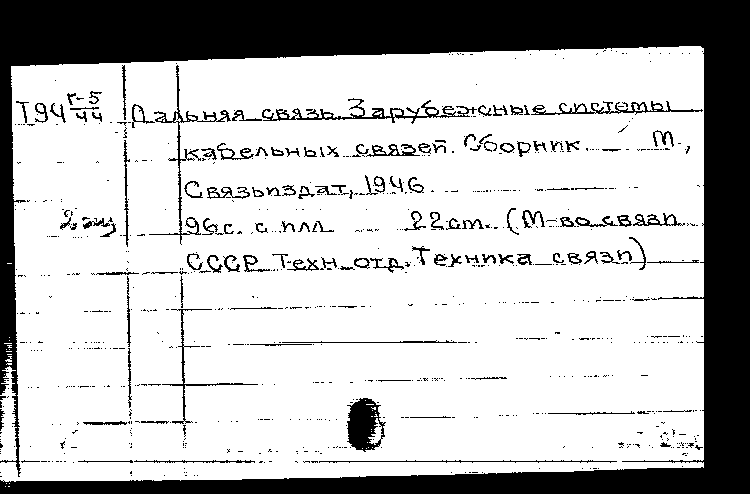 Т94 Г-5/44 Дальняя связь. Зарубежные системы
кабельных связей. Сборник. М,
Связьиздат, 1946.
2 экз 96с. с илл. 22см. (М-во связи
СССР Техн. отд. Техника связи)